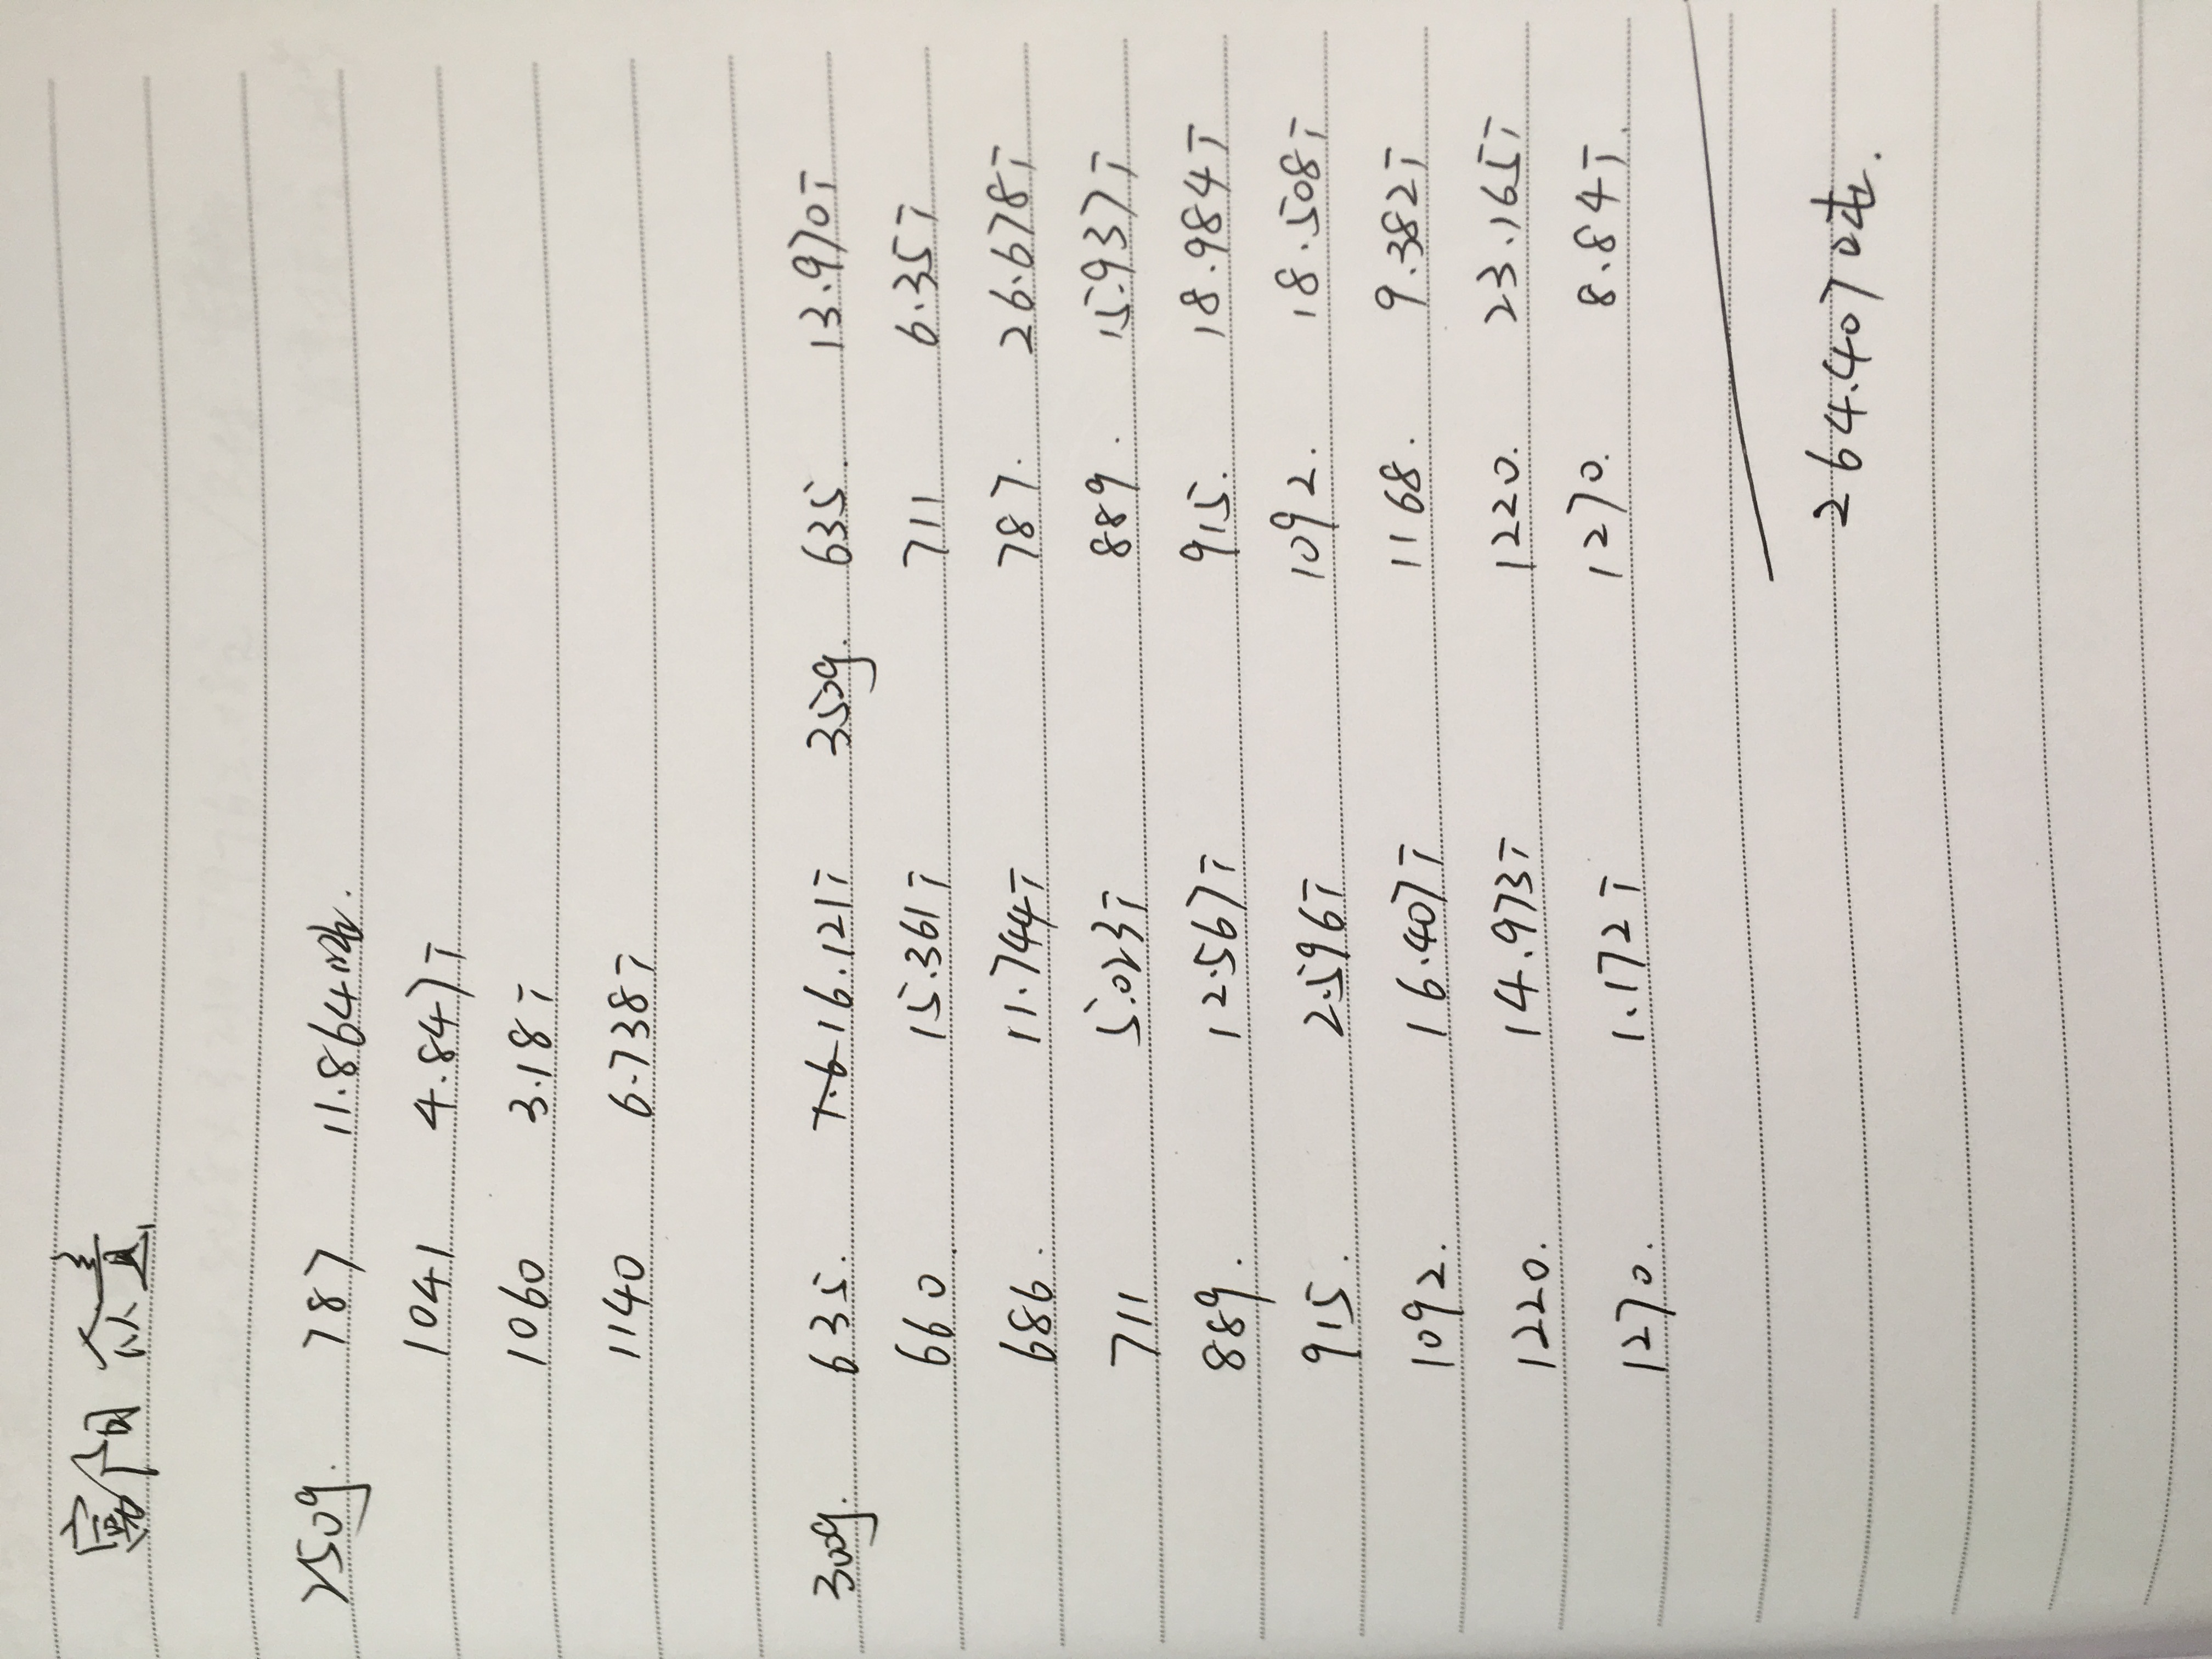 250g. 787 11.864吨.
1041 4.847T
1060 3.18T
1140 6.738T
300g. 635. 16.121T 350g. 635. 13.970T
660 15.361T 711 6.35T
686. 11.744T 787. 26.678T
711 5.023T 889. 15.937T
889. 12.567T 915. 18.984T
915. 2.596T 1092. 18.508T
1092. 16.407T 1168. 9.382T
1220. 14.973T 1220. 23.165T
1270. 1.172T 1270. 8.84T.
264.407吨.